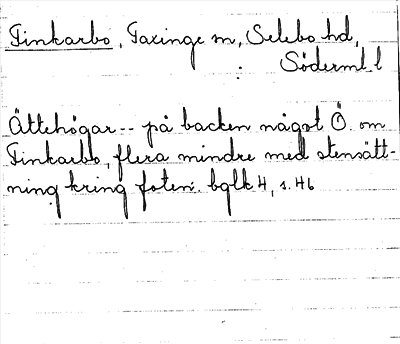 Finkarbo, Taxinge sn, Selebo hd,
Söderml. l
Ättehögar -- på backen något Ö. om
Finkarbo, flera mindre med stensätt-
ning kring foten. bglk 4, s. 46